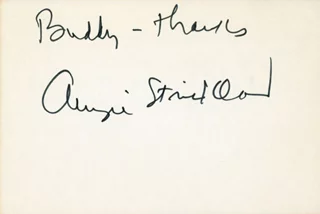 Buddy - thanks
Augie Strickland